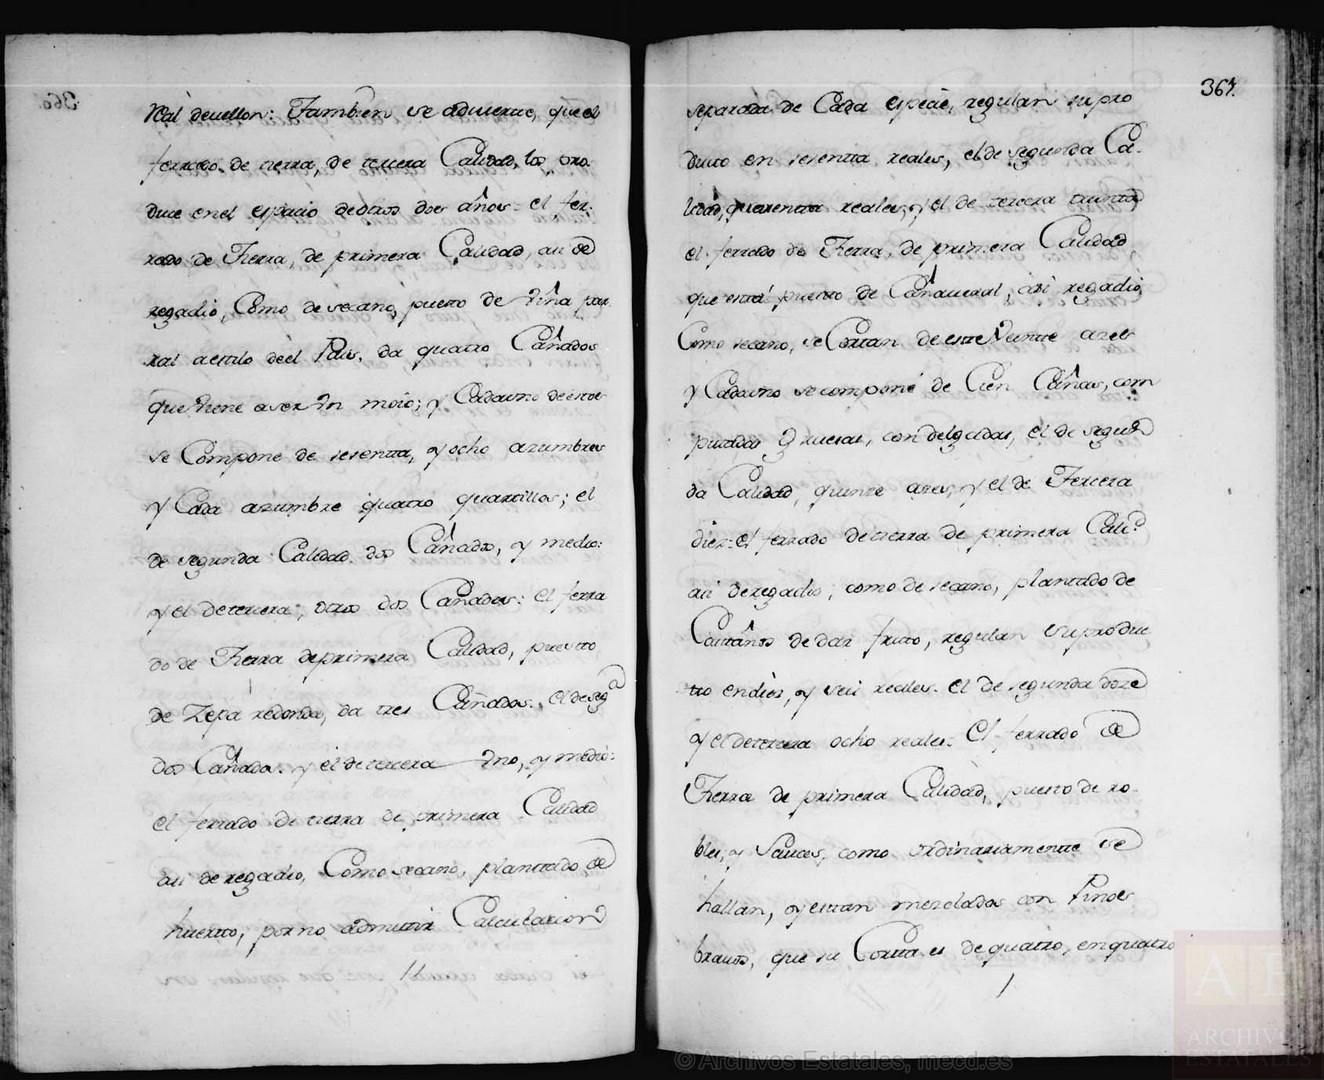 Real devellon: Tambien se adivierte, que el
ferrado de tierra, de tercera Calidad, los pro
duce en el espacio de otros dos años el fer
rado de Tierra, de primera Calidad, asi de
regadio, Como de secano, puesto de viña par
ral a estilo deel Pais, da quatro Cañados
que viene a ser Un moio; y Cadauno de estos
se Compone de sesenta, y ocho azumbres
y Cada azumbre quatro quartillos; el
de segunda Calidad dos Cañados, y medio:
y el de tercera; otros dos Cañados: el ferra
do de Tierra de primera Calidad, puesto
de Zepa redonda, da tres Cañados: el de segda
dos Cañados: y el de tercera Uno, y medio:
el ferrado de tierra de primera Calidad
asi de regadio, Como secano, plantado de
huerto, por no admitir Calculacion
367.
separada de Cada especie, regulan su pro
ducto en sesenta reales, el de segunda Ca-
lidad, quarenta reales, y el de tercera treinta
el ferrado de Tierra, de primera Calidad
que está puesto de Cañaveral, asi regadio,
Como secano, se Cortan de este Veinte azes
y Cadauno se compone de Cien Cañas, com
putadas Gruesas, con delgadas, el de segun
da Calidad, quince azes, y el de Tercera
diez: el ferrado de tierra de primera Calid
asi de regadio; como de secano, plantado de
Castaños de dar fruto, regulan su produc
to en diez, y seis reales: el de segunda doze
y el de tercera ocho reales: El ferrado de
Tierra de primera Calidad, puesto de ro-
bles, y Sauces, como ordinariamente se
hallan, y estan mezclados con Pinos
bravos, que su Corta es de quatro, en quatro
© Archivos Estatales, mecd.es
AE
ARCHIVOS
ESTATALES